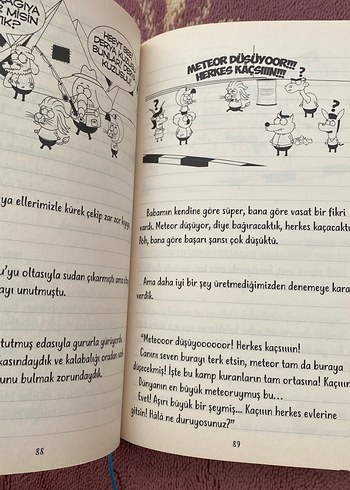 AĞIYA
MİSİN
HEEYY BEE
METEOR DÜŞÜYOOR!!!
HERKES KAÇSIIIN!!!
?
?
?
ya ellerimizle kürek çekip zar zor
u'yu oltasıyla sudan çıkarmıştı, ama
ayı unutmuştu.
tutmuş edasıyla gururla yürüyordu.
kasındaydık ve kalabalığı oradan
unu bulmak zorundaydık.
88
Babamın kendine göre süper, bana göre vasat bir fikri
vardı. Meteor düşüyor, diye bağıracaktık, herkes kaçacaktı.
Iıh, bana göre başarı şansı çok düşüktü.
Ama daha iyi bir şey üretmediğimizden denemeye kara
verdik.
"Meteooor düşüyooooooor! Herkes kaçsıııın!
Canını seven burayı terk etsin, meteor tam da buraya
düşecekmiş! İşte bu kamp kuranların tam ortasına! Kaçıın
Dünyanın en büyük meteoruymuş bu...
Evet! Aşırı büyük bir şeymiş... Kaçııın herkes evlerine
gitsin! Hâlâ ne duruyosunuz?"
89